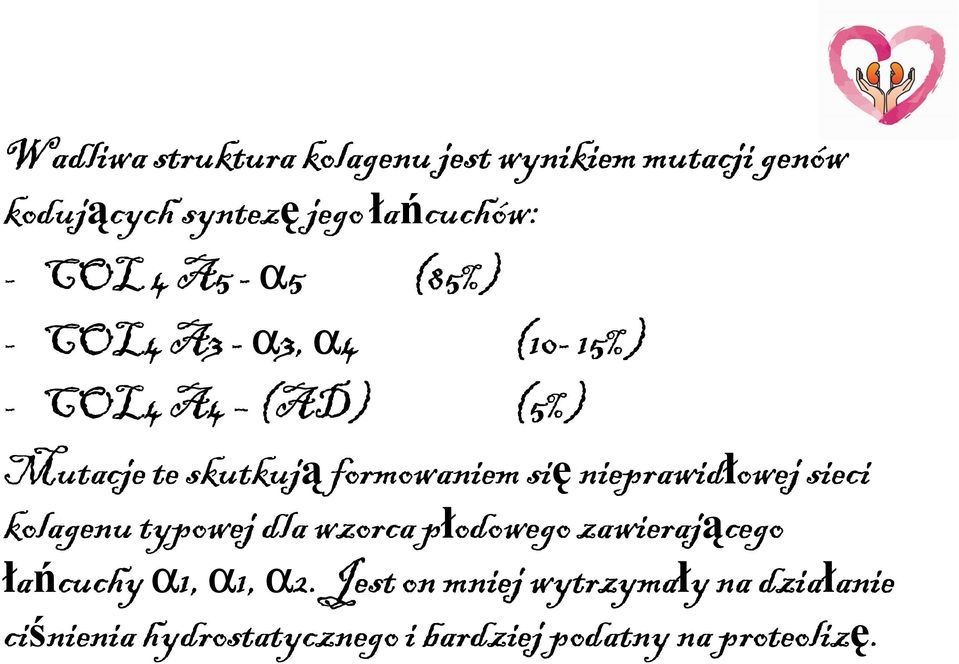 Wadliwa struktura kolagenu jest wynikiem mutacji genów
kodujących syntezę jego łańcuchów:
- COL 4 A5 - α5 (85%)
- COL4 A3 - α3, α4 (10-15%)
- COL4 A4 – (AD) (5%)
Mutacje te skutkują formowaniem się nieprawidłowej sieci
kolagenu typowej dla wzorca płodowego zawierającego
łańcuchy α1, α1, α2. Jest on mniej wytrzymały na działanie
ciśnienia hydrostatycznego i bardziej podatny na proteolizę.